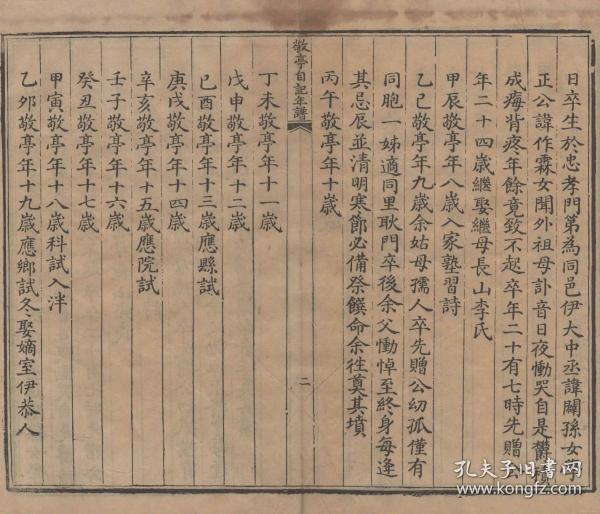 日卒生於忠孝門第為同邑伊大中丞諱闢孫女孝
正公諱作霖女聞外祖母訃音日夜慟哭自是鬱積
成痗背疼年餘竟致不起卒年二十有七時先贈公
年二十四歲繼娶繼母長山李氏
甲辰敬亭年八歲入家塾習詩
乙巳敬亭年九歲余姑母孺人卒先贈公幼孤僅有
同胞一姊適同里耿門卒後余父慟悼至終身每逢
其忌辰並清明寒節必備祭饌命余往奠其墳
丙午敬亭年十歲
敬亭自記年譜
二
丁未敬亭年十一歲
戊申敬亭年十二歲
己酉敬亭年十三歲應縣試
庚戌敬亭年十四歲
辛亥敬亭年十五歲應院試
壬子敬亭年十六歲
癸丑敬亭年十七歲
甲寅敬亭年十八歲科試入泮
乙卯敬亭年十九歲應鄉試冬娶嫡室伊恭人
孔夫子旧书网
www.kongfz.com